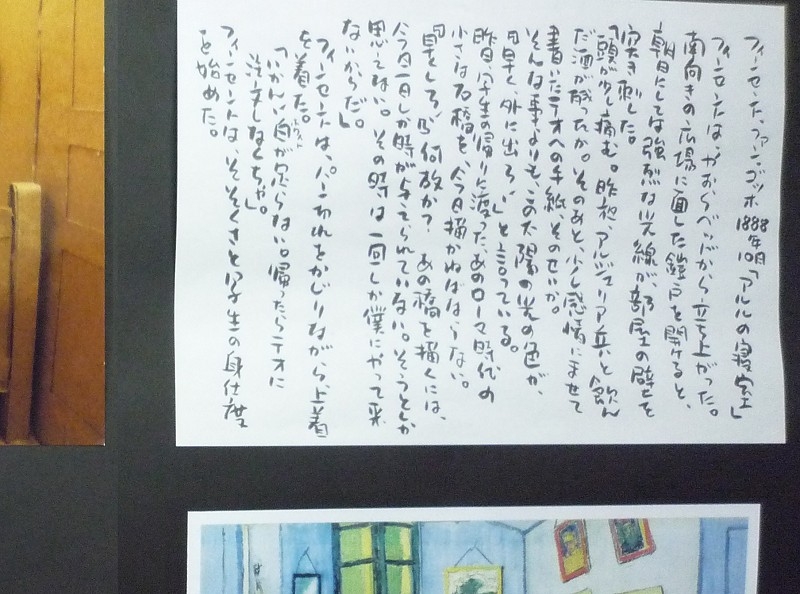 フィンセント・ファン・ゴッホ 1888年10月「アルルの寝室」
フィンセントは、やおらベッドから立ち上がった。
南向きの広場に面した鎧戸を開けると、
朝日にしては強烈な光線が、部屋の壁を
突き刺した。
「頭が少し痛む。昨夜、アルジェリア兵と飲ん
だ酒が残ったか。そのあと、少し感情にまかせて
書いたテオへの手紙のせいか。
そんな事よりも、この太陽の光の色が、
『早く、外に出ろ、』と言っている。
昨日、写生の帰りに渡った、あのローマ時代の
小さな石橋を、今日描かねばならない。
『早くしろ』何故か?あの橋を描くには、
今日一日しか時が与えられていない。そうとしか
思えない。その時は一回しか僕にやって来
ないからだ。」
フィンセントは、パン切れをかじりながら、上着
を着た。
「いかん、白が足らない。帰ったらテオに
注文しなくちゃ。」
フィンセントは、そそくさと写生の身仕度
を始めた。